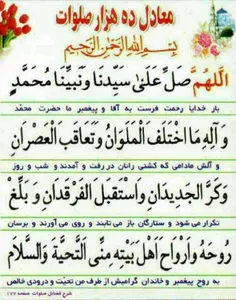 معادل ده هزار صلوات
بِسْمِ اللهِ الرَّحْمٰنِ الرَّحيمِ
اَللّهُمَّ صَلِّ عَلىٰ سَيِّدِنا وَنَبِيِّنا مُحَمَّدٍ
بار خدایا رحمت فرست به آقا و پیغمبر ما حضرت محمّد
وَ آلِهِ مَا اخْتَلَفَ الْمَلَوانُ وَتَعاقَبَ الْعَصْرانِ
و آلش مادامی که کشتی رانان در رفت و آمدند و شب و روز
وَكَرَّ الْجَديدانِ وَاسْتَقْبَلَ الْفَرْقَدانِ وَ بَلِّغْ
تکرار می شود و ستارگان باز می تابند و روی می آورند و برسان
رُوحَهُ وَاَرْواحَ اَهْلِ بَيْتِهِ مِنّى التَّحِيَّةَ وَالسَّلامَ
به روح پیغمبر و خاندان گرامیش از طرف من تحیّت و درودی خالص
شرح فضائل صلوات صفحه ۱۷۷